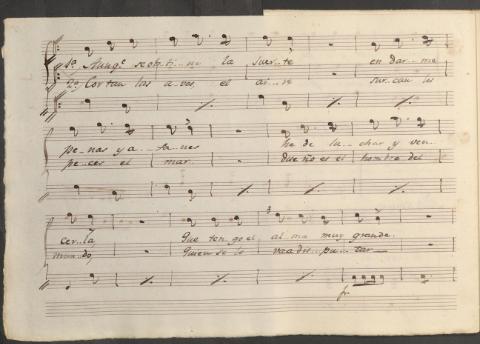 1ª Aunqᵉ se obsti..ne la suer..te en dar..me
2ª Cortan las a..ves el ai..re surcan los
pe..nas y a..fa..nes he de lu..char y ven..
pe..ces el mar dueño es el hombre del
cer..la Que ten..go el al..ma muy grande
mun..do Quien se lo va a dis..pu..tar
3
fᵉ